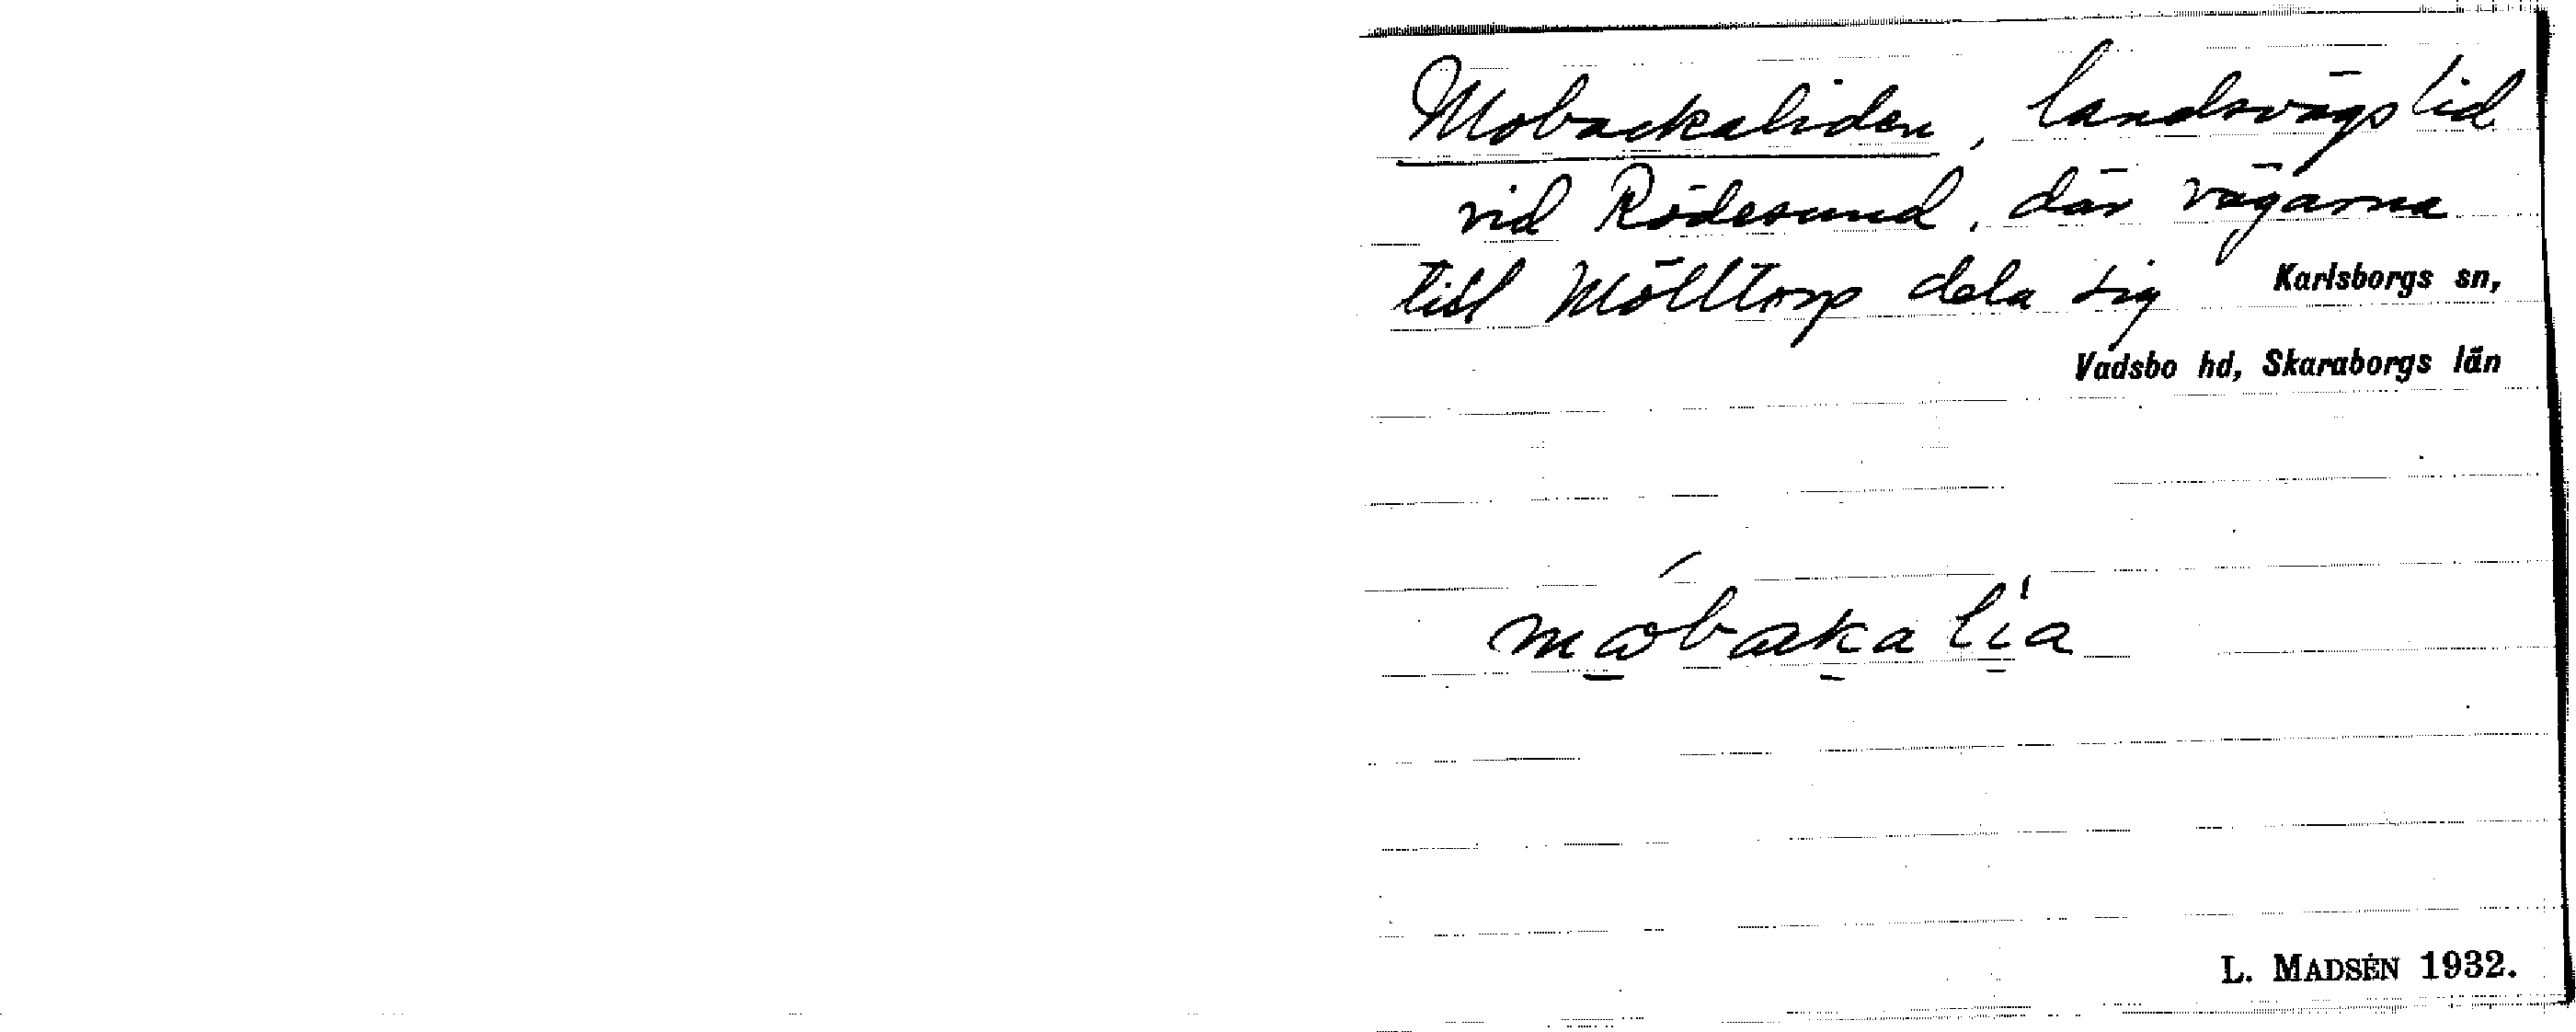 Mobackaliden, landsvägslid
vid Rödesund, där vägarna
till Mölltorp dela sig
Karlsborgs sn,
Vadsbo hd, Skaraborgs län
móbakalía
L. MADSÉN 1932.